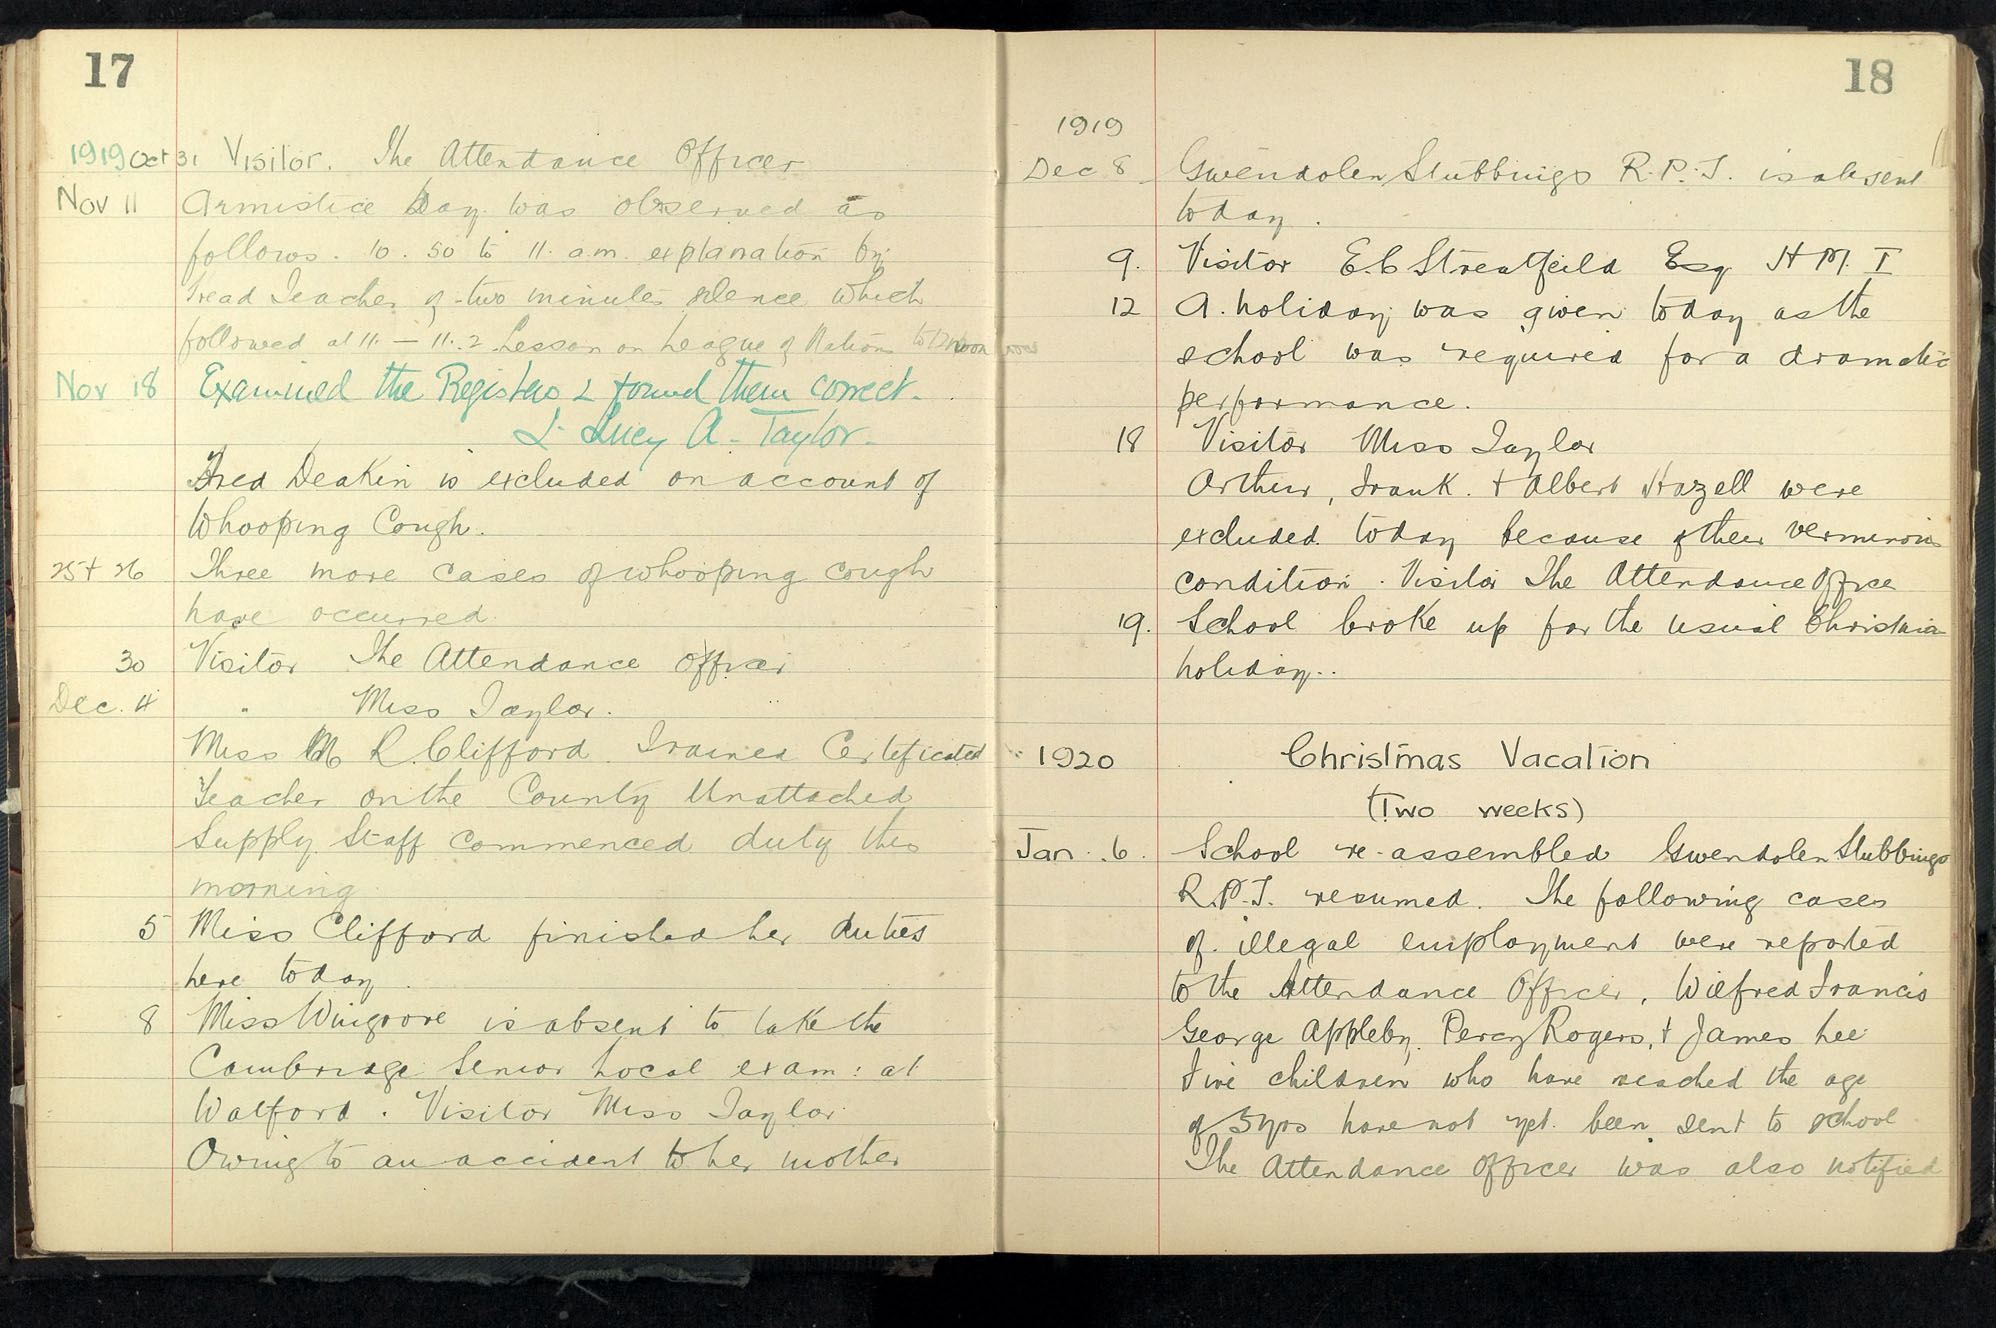 17
1919 Oct 31 Visitor. The Attendance Officer
Nov 11 Armistice Day was observed as
follows. 10.50 to 11. a.m. explanation by
Head Teacher of two minutes silence which
followed at 11. — 11.2 Lesson on League of Nations to 12 noon
Nov 18 Examined the Registers & found them correct.
L. Lucy A. Taylor.
Fred Deakin is excluded on account of
Whooping Cough.
25 + 26 Three more cases of whooping cough
have occurred.
30 Visitor The Attendance Officer
Dec. 4 " Miss Taylor.
Miss M R. Clifford. Trained Certificated
Teacher on the County Unattached
Supply Staff commenced duty this
morning
5 Miss Clifford finished her duties
here today.
8 Miss Wingrove is absent to take the
Cambridge Senior Local exam: at
Watford. Visitor Miss Taylor
Owing to an accident to her mother
18
1919
Dec 8 Gwendolen Stubbings R.P.T. is absent
today.
9. Visitor E.C Streatfeild Esq H M. I
12 A. holiday was given today as the
school was required for a dramatic
performance.
18 Visitor Miss Taylor
Arthur, Frank. + Albert Hazell were
excluded today because of their verminous
condition. Visitor The Attendance Office
19. School broke up for the usual Christmas
holiday..
1920 Christmas Vacation
(Two weeks)
Jan. 6. School re-assembled Gwendolen Stubbings
R.P.T. resumed. The following cases
of illegal employment were reported
to the Attendance Officer, Wilfred Francis
George Appleby, Percy Rogers, + James Lee
Five children who have reached the age
of 5 yrs have not yet been sent to school
The Attendance Officer was also notified